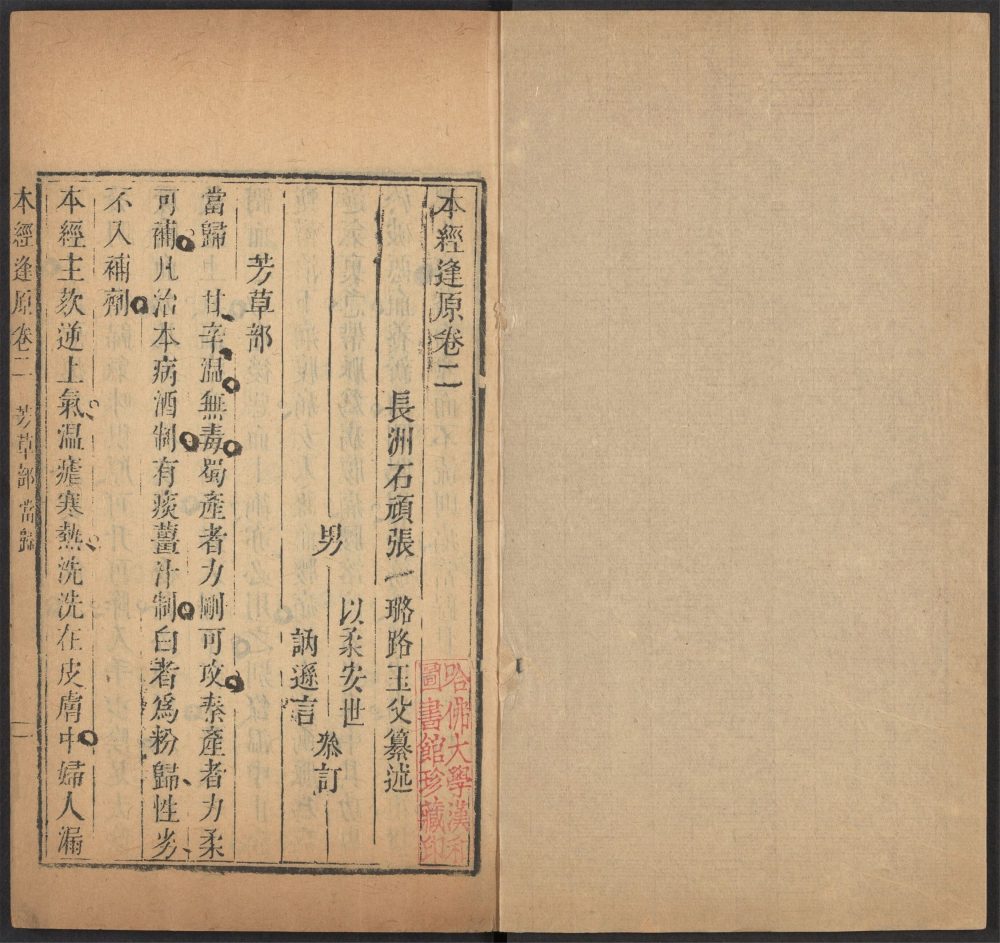 本經逢原卷二
長洲石頑張一璐路玉父纂述
男
以柔安世
訥遜言
叅訂
芳草部
當歸 甘辛温無毒蜀產者力剛可攻秦產者力柔
可補凡治本病酒制有痰薑汁制白者爲粉歸性劣
不入補劑
本經主欬逆上氣温瘧寒熱洗洗在皮膚中婦人漏
本經逢原卷二 芳草部 當歸 一
哈佛大學漢和
圖書館珍藏印